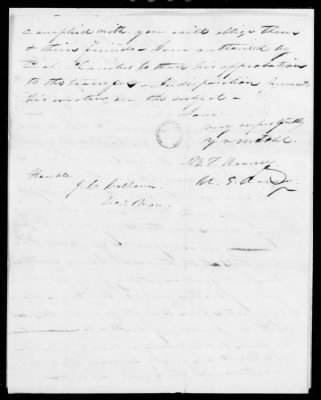 complied with you will oblige them
& their friends - I am authorised by
to state his approbation
to the transfer - Indisposition prevents
his writing on the subject -
I am
very respectfully
Yr mt obt
Honble
J. C. Calhoun
Sec. War
U. S. A